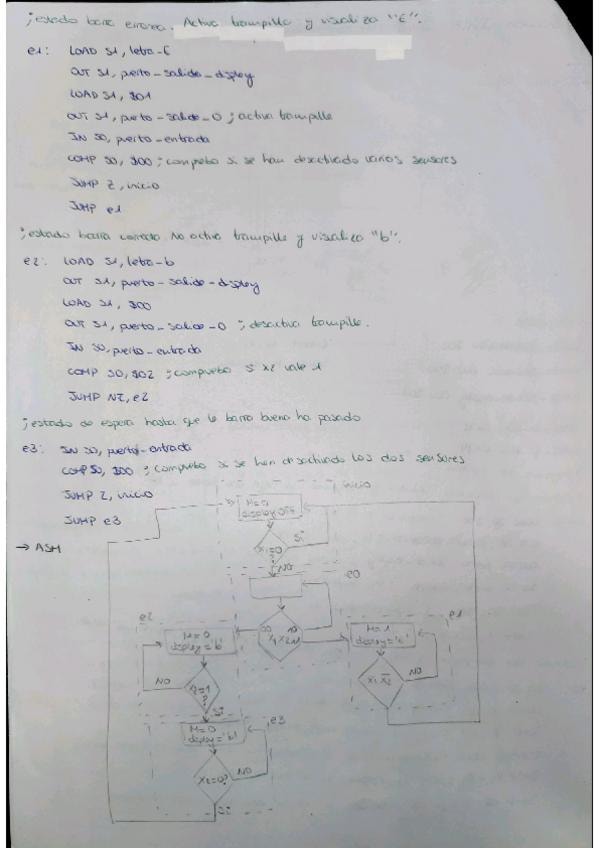 ;estado barra erronea. Activa trampilla y visualiza "E".
e1: LOAD S1, letra-E
OUT S1, puerto-salida-display
LOAD S1, $01
OUT S1, puerto-salida-0 ; activa trampilla
IN S0, puerto-entrada
COMP S0, $00 ; compruebo si se han desactivado varios sensores
JUMP Z, inicio
JUMP e1
;estado barra correcta No activa trampilla y visualiza "b".
e2: LOAD S1, letra-b
OUT S1, puerto-salida-display
LOAD S1, $00
OUT S1, puerto-salida-0 ; desactiva trampilla.
IN S0, puerto-entrada
COMP S0, $02 ; compruebo si x2 vale 1
JUMP NZ, e2
;estado de espera hasta que la barra buena ha pasado
e3: IN S0, puerto-entrada
COMP S0, $00 ; compruebo si se han desactivado los dos sensores
JUMP Z, inicio
JUMP e3
→ ASM
inicio
M=0
display
x1=0
?
Si
NO
e0
e2
M=0
display='b'
00
10
x1x2
11
e1
M=1
display='E'
NO
x2=1
?
Si
x1 x2
NO
e3
M=0
display='b'
x2=0?
NO
Si